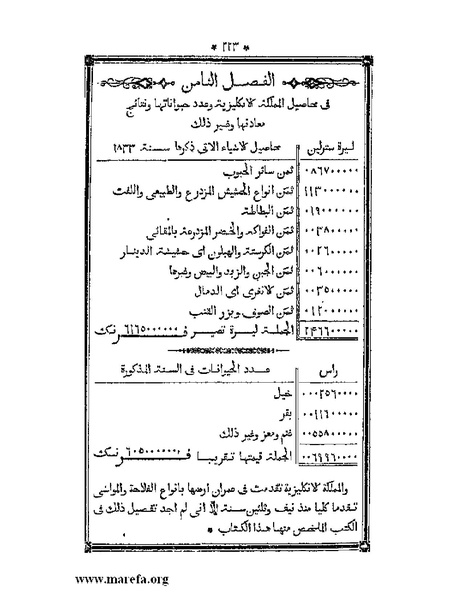 * ٢٢٣ *
الفصل الثامن
فى محاصيل المملكة لانكليزية وعدد حيواناتها ونتائج
معادنها وغير ذلك
ليرة سترلين محاصيل لاشياء الاتى ذكرها سنة ١٨٣٣
٠٨٦٧٠٠٠٠٠ ثمن سائر الحبوب
١١٣٠٠٠٠٠٠ ثمن انواع الحشيش المزدرع والطبيعى واللفت
٠١٩٠٠٠٠٠٠ ثمن البطاطة
٠٠٣٨٠٠٠٠٠ ثمن الفواكه والخضر المزدرعة بالمقاثى
٠٠٢٦٠٠٠٠٠ ثمن الكرستة والهبلون اى حشيشة الدينار
٠٠٦٠٠٠٠٠٠ ثمن الجبن والزبد والبيض وغيرها
٠٠٣٥٠٠٠٠٠ ثمن لانغرى اى الدمال
٠١٢٠٠٠٠٠٠ ثمن الصوف وبزر القنب
٢٤٦٦٠٠٠٠٠ الجملة ليرة تصير ٦١٦٥٠٠٠٠٠٠ فرنك
راس عدد الحيوانات فى السنة المذكورة
٠٠٠٢٥٦٠٠٠٠ خيل
٠٠١١٦٠٠٠٠٠ بقر
٠٠٥٥٨٠٠٠٠٠ غنم ومعز وغير ذلك
٠٠٦٩٩٦٠٠٠٠ الجملة قيمتها تقريبا ٦٠٥٠٠٠٠٠٠٠ فرنك
والمملكة لانكليزية تقدمت فى عمران ارضها بانواع الفلاحة والمواشى
تقدما كليا منذ نيف وثلثين سنة إلّا انى لم اجد تفصيل ذلك فى
الكتب الملخص منها هذا الكتاب *
www.marefa.org